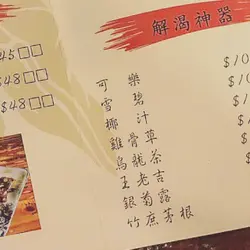 45□□
$48□□
$48□□
解渴神器
可樂 $10
雪碧 $10
椰汁
雞骨草
烏龍茶
王老吉
銀菊露
竹庶茅根